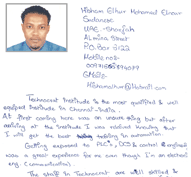 Hisham Elhur Mohamed Elnour
Sudanese
UAE - Sharjah
Almina Street
P.O. Box 3122
Mobile no:-
GMail:-
@Hotmail.com
Technocrat Institute is the most qualified & well
equiped Institute in Chennai - India.
At first coming here was an unsure thing but after
arriving at the Institute I was realized knowing that
I will get the best training in automation.
Getting exposed to PLC's, DCS & control & engineering
was a great experience for me even though I'm an electronic
eng. (Communication)
The staff in Technocrat are well skilled &